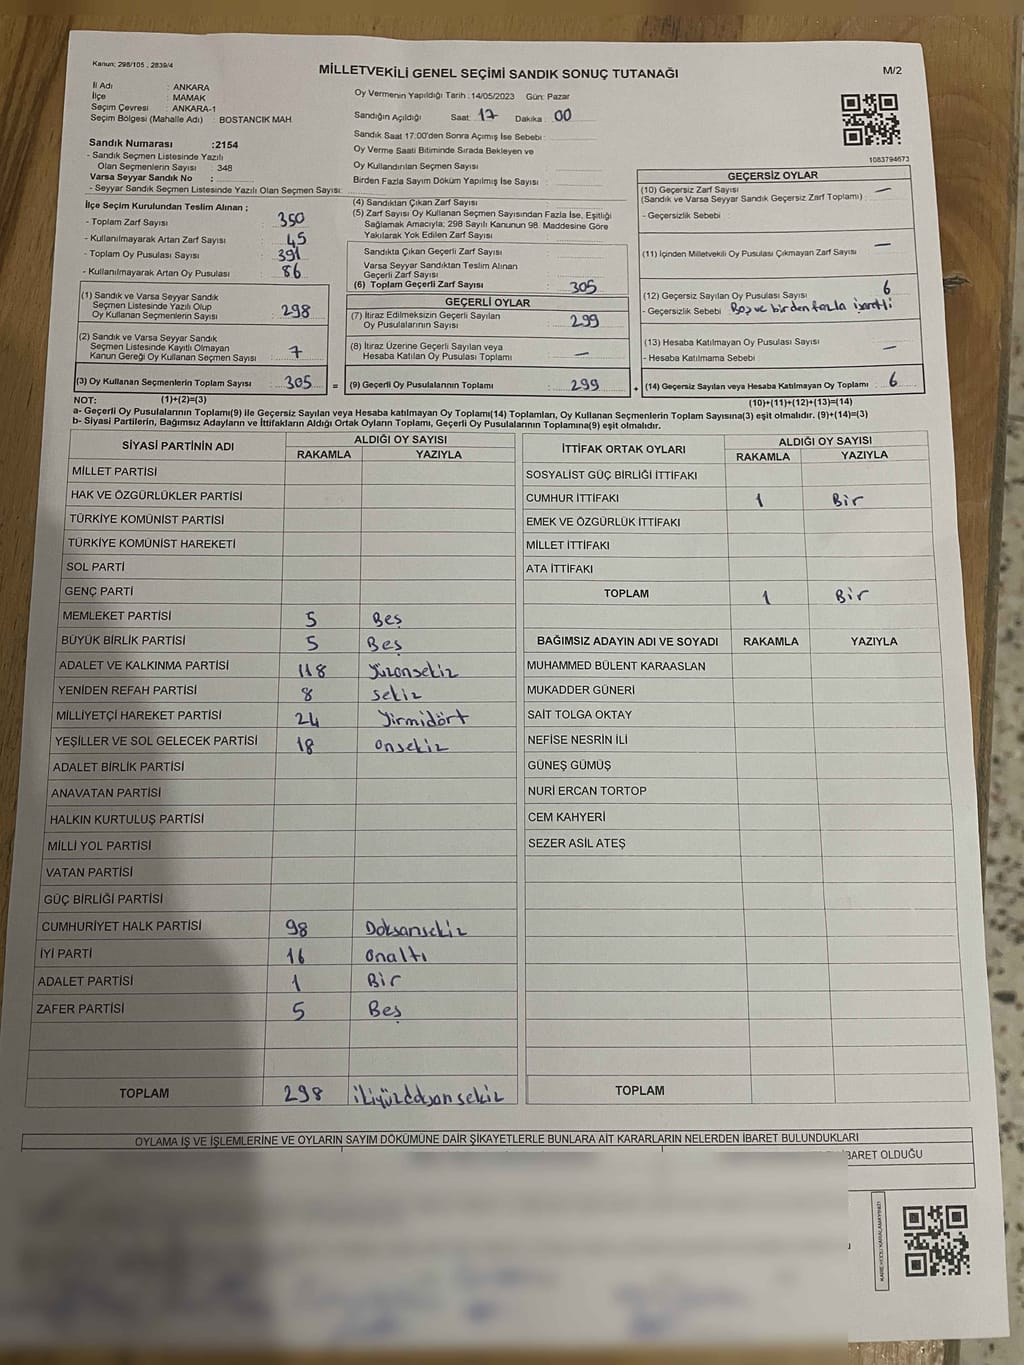 Kanun; 298/105 , 2839/4
MİLLETVEKİLİ GENEL SEÇİMİ SANDIK SONUÇ TUTANAĞI
M/2
İl Adı : ANKARA
İlçe : MAMAK
Seçim Çevresi : ANKARA-1
Seçim Bölgesi (Mahalle Adı) : BOSTANCIK MAH.
Oy Vermenin Yapıldığı Tarih :14/05/2023 Gün: Pazar
Sandığın Açıldığı Saat: 17 Dakika: 00
Sandık Saat 17:00'den Sonra Açımış İse Sebebi :
Oy Verme Saati Bitiminde Sırada Bekleyen ve
Oy Kullandırılan Seçmen Sayısı :
Birden Fazla Sayım Döküm Yapılmış İse Sayısı :
1083794673
Sandık Numarası :2154
- Sandık Seçmen Listesinde Yazılı
Olan Seçmenlerin Sayısı : 348
Varsa Seyyar Sandık No :
- Seyyar Sandık Seçmen Listesinde Yazılı Olan Seçmen Sayısı:
İlçe Seçim Kurulundan Teslim Alınan ;
- Toplam Zarf Sayısı : 350
- Kullanılmayarak Artan Zarf Sayısı : 45
- Toplam Oy Pusulası Sayısı : 391
- Kullanılmayarak Artan Oy Pusulası : 86
(1) Sandık ve Varsa Seyyar Sandık
Seçmen Listesinde Yazılı Olup
Oy Kullanan Seçmenlerin Sayısı : 298
(2) Sandık ve Varsa Seyyar Sandık
Seçmen Listesinde Kayıtlı Olmayan
Kanun Gereği Oy Kullanan Seçmen Sayısı : 7
(3) Oy Kullanan Seçmenlerin Toplam Sayısı : 305
(4) Sandıktan Çıkan Zarf Sayısı :
(5) Zarf Sayısı Oy Kullanan Seçmen Sayısından Fazla İse, Eşitliği
Sağlamak Amacıyla; 298 Sayılı Kanunun 98. Maddesine Göre
Yakılarak Yok Edilen Zarf Sayısı :
Sandıkta Çıkan Geçerli Zarf Sayısı :
Varsa Seyyar Sandıktan Teslim Alınan
Geçerli Zarf Sayısı :
(6) Toplam Geçerli Zarf Sayısı : 305
GEÇERLİ OYLAR
(7) İtiraz Edilmeksizin Geçerli Sayılan
Oy Pusulalarının Sayısı : 299
(8) İtiraz Üzerine Geçerli Sayılan veya
Hesaba Katılan Oy Pusulası Toplamı : —
= (9) Geçerli Oy Pusulalarının Toplamı : 299
GEÇERSİZ OYLAR
(10) Geçersiz Zarf Sayısı : —
(Sandık ve Varsa Seyyar Sandık Geçersiz Zarf Toplamı)
- Geçersizlik Sebebi :
(11) İçinden Milletvekili Oy Pusulası Çıkmayan Zarf Sayısı : —
(12) Geçersiz Sayılan Oy Pusulası Sayısı : 6
- Geçersizlik Sebebi : Boş ve birden fazla işaretli
(13) Hesaba Katılmayan Oy Pusulası Sayısı : —
- Hesaba Katılmama Sebebi :
+ (14) Geçersiz Sayılan veya Hesaba Katılmayan Oy Toplamı : 6
NOT: (1)+(2)=(3)
(10)+(11)+(12)+(13)=(14)
a- Geçerli Oy Pusulalarının Toplamı(9) ile Geçersiz Sayılan veya Hesaba katılmayan Oy Toplamı(14) Toplamları, Oy Kullanan Seçmenlerin Toplam Sayısına(3) eşit olmalıdır. (9)+(14)=(3)
b- Siyasi Partilerin, Bağımsız Adayların ve İttifakların Aldığı Ortak Oyların Toplamı, Geçerli Oy Pusulalarının Toplamına(9) eşit olmalıdır.
SİYASİ PARTİNİN ADI ALDIĞI OY SAYISI
RAKAMLA YAZIYLA
MİLLET PARTİSİ
HAK VE ÖZGÜRLÜKLER PARTİSİ
TÜRKİYE KOMÜNİST PARTİSİ
TÜRKİYE KOMÜNİST HAREKETİ
SOL PARTİ
GENÇ PARTİ
MEMLEKET PARTİSİ 5 Beş
BÜYÜK BİRLİK PARTİSİ 5 Beş
ADALET VE KALKINMA PARTİSİ 118 Yüzonsekiz
YENİDEN REFAH PARTİSİ 8 sekiz
MİLLİYETÇİ HAREKET PARTİSİ 24 Yirmidört
YEŞİLLER VE SOL GELECEK PARTİSİ 18 onsekiz
ADALET BİRLİK PARTİSİ
ANAVATAN PARTİSİ
HALKIN KURTULUŞ PARTİSİ
MİLLİ YOL PARTİSİ
VATAN PARTİSİ
GÜÇ BİRLİĞİ PARTİSİ
CUMHURİYET HALK PARTİSİ 98 Doksansekiz
İYİ PARTİ 16 onaltı
ADALET PARTİSİ 1 Bir
ZAFER PARTİSİ 5 Beş
TOPLAM 298 ikiyüzdoksansekiz
İTTİFAK ORTAK OYLARI ALDIĞI OY SAYISI
RAKAMLA YAZIYLA
SOSYALİST GÜÇ BİRLİĞİ İTTİFAKI
CUMHUR İTTİFAKI 1 Bir
EMEK VE ÖZGÜRLÜK İTTİFAKI
MİLLET İTTİFAKI
ATA İTTİFAKI
TOPLAM 1 Bir
BAĞIMSIZ ADAYIN ADI VE SOYADI RAKAMLA YAZIYLA
MUHAMMED BÜLENT KARAASLAN
MUKADDER GÜNERİ
SAİT TOLGA OKTAY
NEFİSE NESRİN İLİ
GÜNEŞ GÜMÜŞ
NURİ ERCAN TORTOP
CEM KAHYERİ
SEZER ASİL ATEŞ
TOPLAM
OYLAMA İŞ VE İŞLEMLERİNE VE OYLARIN SAYIM DÖKÜMÜNE DAİR ŞİKAYETLERLE BUNLARA AİT KARARLARIN NELERDEN İBARET BULUNDUKLARI
İBARET OLDUĞU
KAREKODU KARALAMAYINIZ!